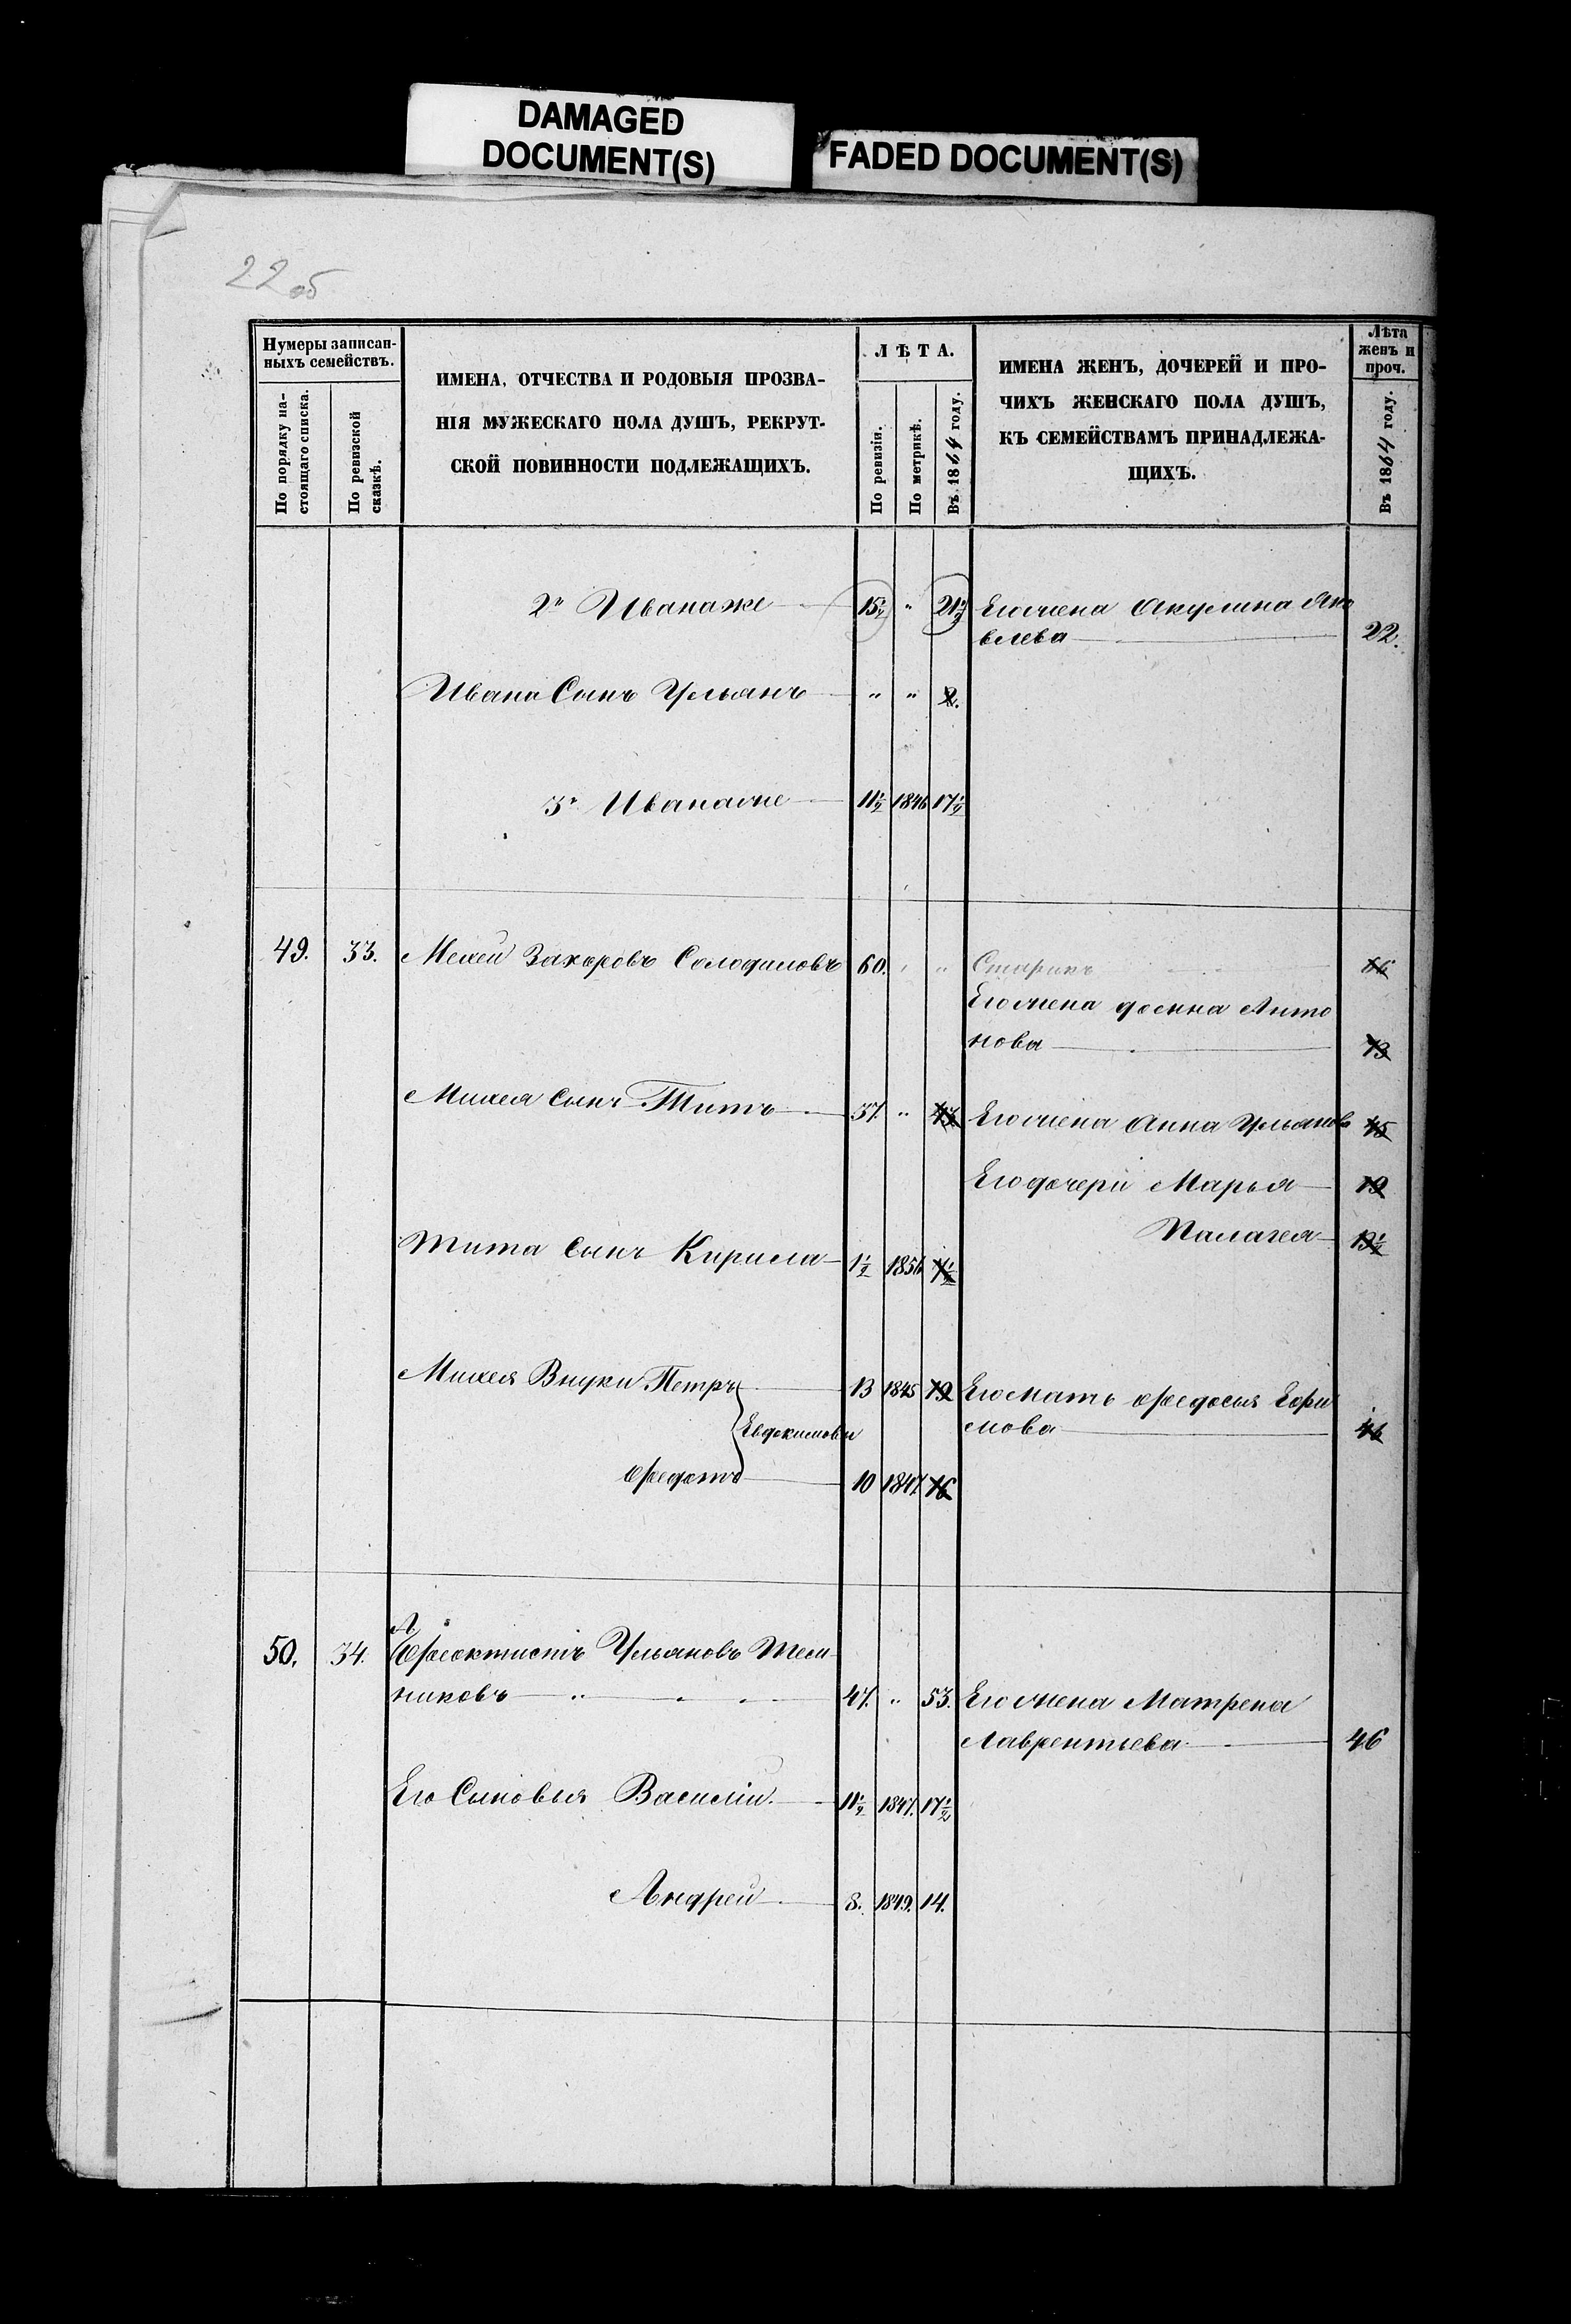 DAMAGED
DOCUMENT(S)
FADED DOCUMENT(S)
22 об
Нумеры записан-
ныхъ семействъ.
По порядку на-
стоящаго списка.
По ревизской
сказкѣ.
ИМЕНА, ОТЧЕСТВА И РОДОВЫЯ ПРОЗВА-
НІЯ МУЖЕСКАГО ПОЛА ДУШЪ, РЕКРУТ-
СКОЙ ПОВИННОСТИ ПОДЛЕЖАЩИХЪ.
ЛѢТА.
По ревизіи.
По метрикѣ.
Въ 1864 году.
ИМЕНА ЖЕНЪ, ДОЧЕРЕЙ И ПРО-
ЧИХЪ ЖЕНСКАГО ПОЛА ДУШЪ,
КЪ СЕМЕЙСТВАМЪ ПРИНАДЛЕЖА-
ЩИХЪ.
Лѣта
женъ и
проч.
Въ 1864 году.
2й Иванъ же 15½ " 21½ Его жена Акулина Яко
влева 22.
Ивана Сынъ Ульянъ " " 2.
3й Иванъ же 11½ 1846 17½
49. 33. Михей Захаровъ Солодиловъ 60. " " Старикъ 66
Его жена Анна Анто
нова 73
Михея Сынъ Титъ 37. " 43 Его жена Анна Ульянова 45
Его дочери Марья 19
Палагея 13½
Тита Сынъ Кирила 1½ 1856 7½
Михея Внуки Петръ 13 1845 19 Его мать Федосья Ефи
Евдокимовы мова 46
Федотъ 10 1847 16
50. 34. Феоктистъ Ульяновъ
никовъ 47. " 53. Его жена Матрена
Лаврентьева 46
Его Сыновья Василій. 11½ 1847. 17½
Андрей 8. 1849. 14.